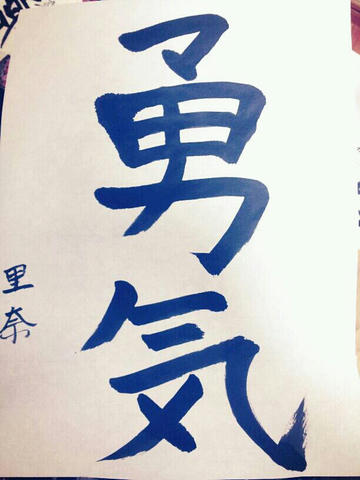 勇気
里奈